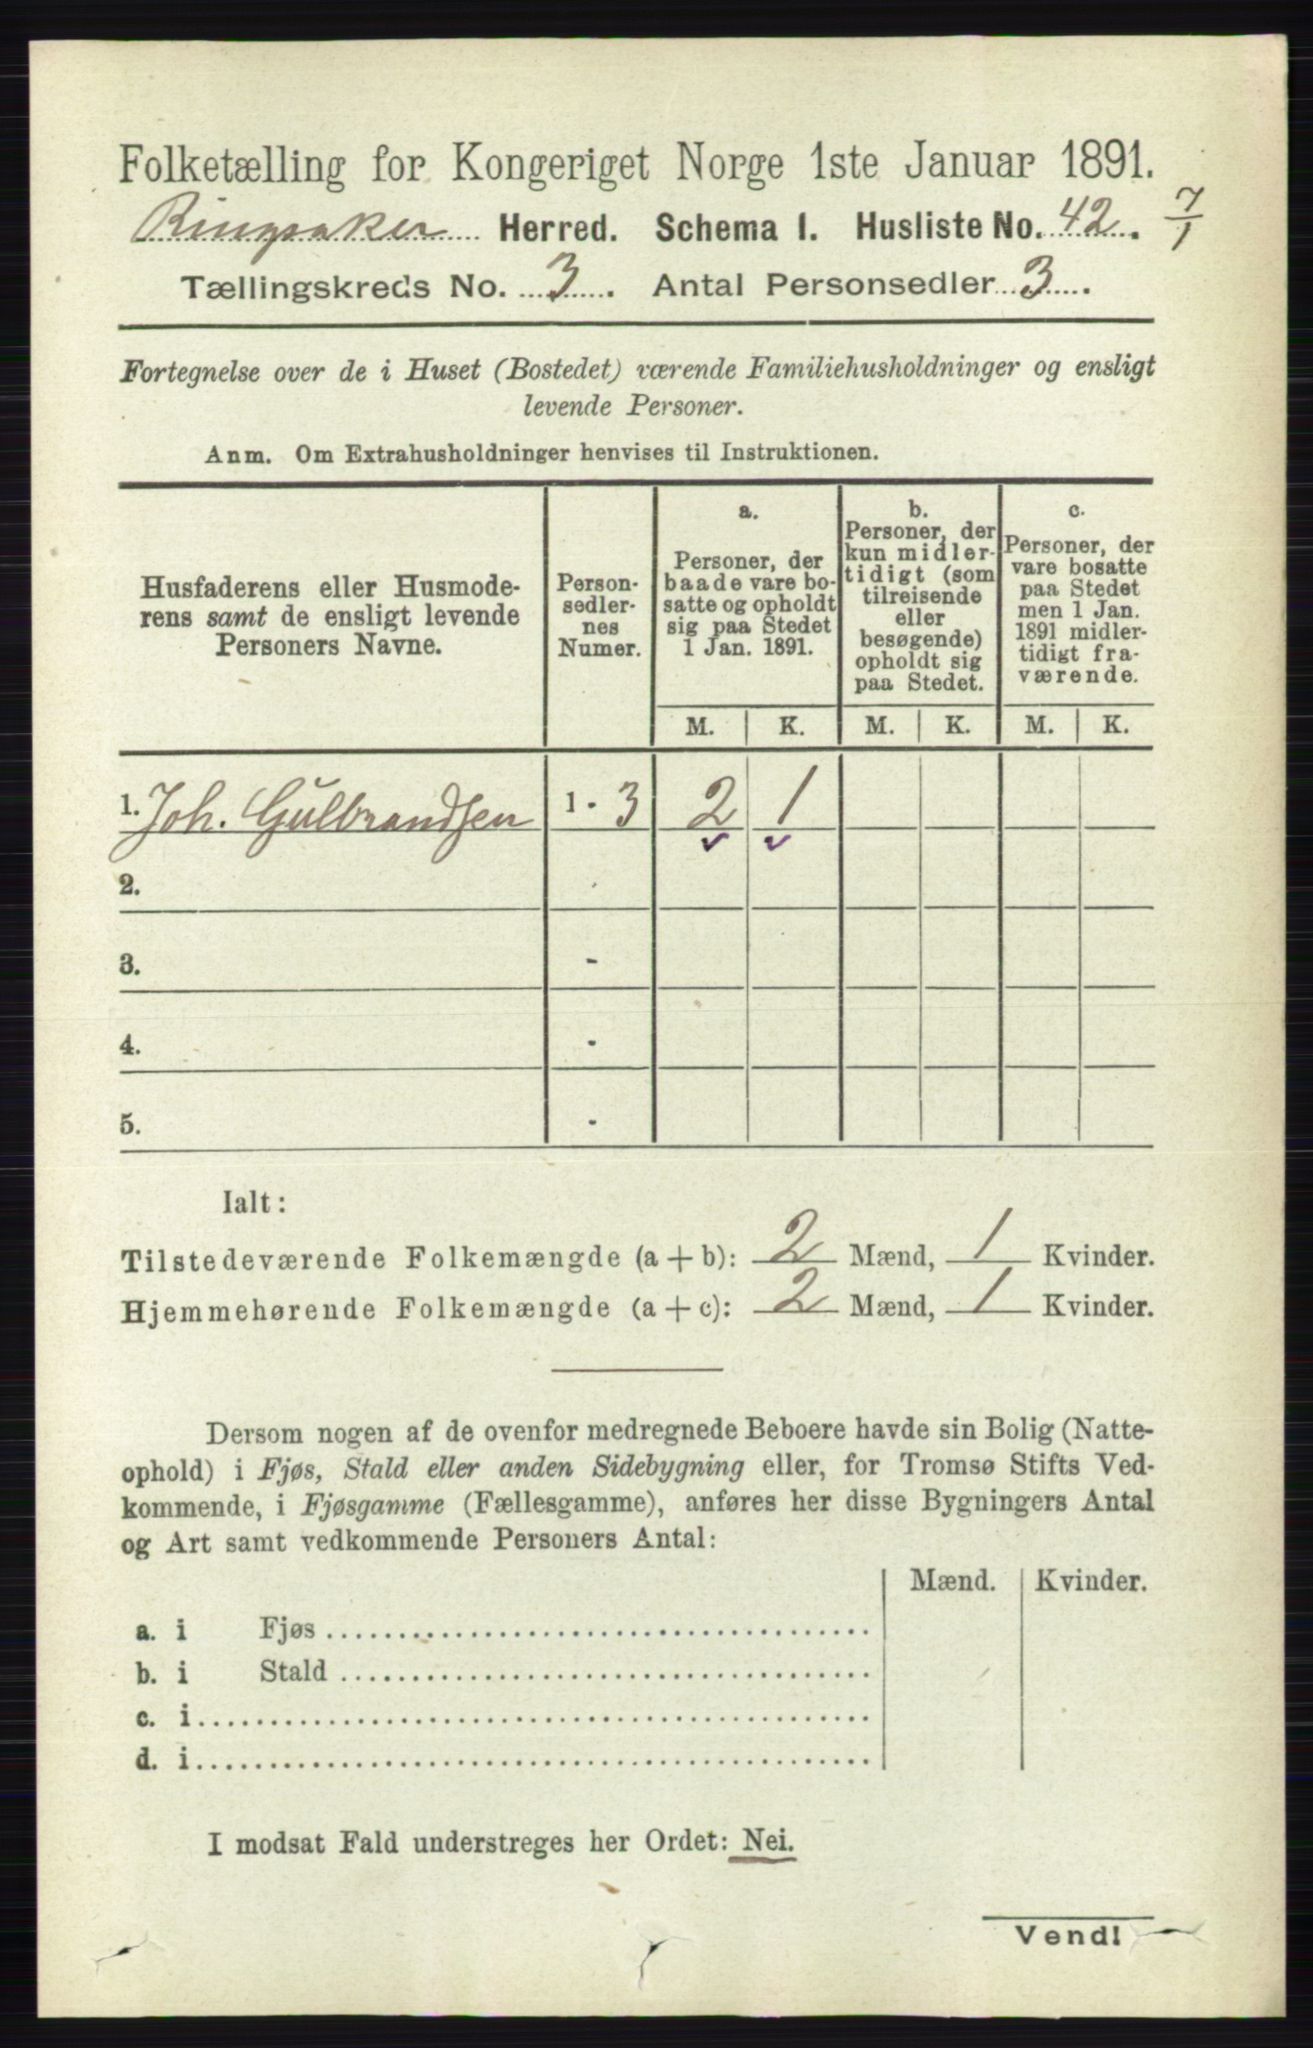 Folketælling for Kongeriget Norge 1ste Januar 1891.
Ringsaker Herred. Schema I. Husliste No. 42. 7/1
Tællingskreds No. 3. Antal Personsedler 3.
Fortegnelse over de i Huset (Bostedet) værende Familiehusholdninger og ensligt
levende Personer.
Anm. Om Extrahusholdninger henvises til Instruktionen.
Husfaderens eller Husmode-
rens samt de ensligt levende
Personers Navne.
Person-
sedler-
nes
Numer.
a.
Personer, der
baade vare bo-
satte og opholdt
sig paa Stedet
1 Jan. 1891.
b.
Personer, der
kun midler-
tidigt (som
tilreisende
eller
besøgende)
opholdt sig
paa Stedet.
c.
Personer, der
vare bosatte
paa Stedet
men 1 Jan.
1891 midler-
tidigt fra-
værende.
M. K. M. K. M. K.
1. Joh. Gulbrandsen 1 - 3 2 1
2.
3. -
4. -
5. -
Ialt:
Tilstedeværende Folkemængde (a + b): 2 Mænd, 1 Kvinder.
Hjemmehørende Folkemængde (a + c): 2 Mænd, 1 Kvinder.
Dersom nogen af de ovenfor medregnede Beboere havde sin Bolig (Natte-
ophold) i Fjøs, Stald eller anden Sidebygning eller, for Tromsø Stifts Ved-
kommende, i Fjøsgamme (Fællesgamme), anføres her disse Bygningers Antal
og Art samt vedkommende Personers Antal:
Mænd. Kvinder.
a. i Fjøs
b. i Stald
c. i
d. i
I modsat Fald understreges her Ordet: Nei.
Vend!